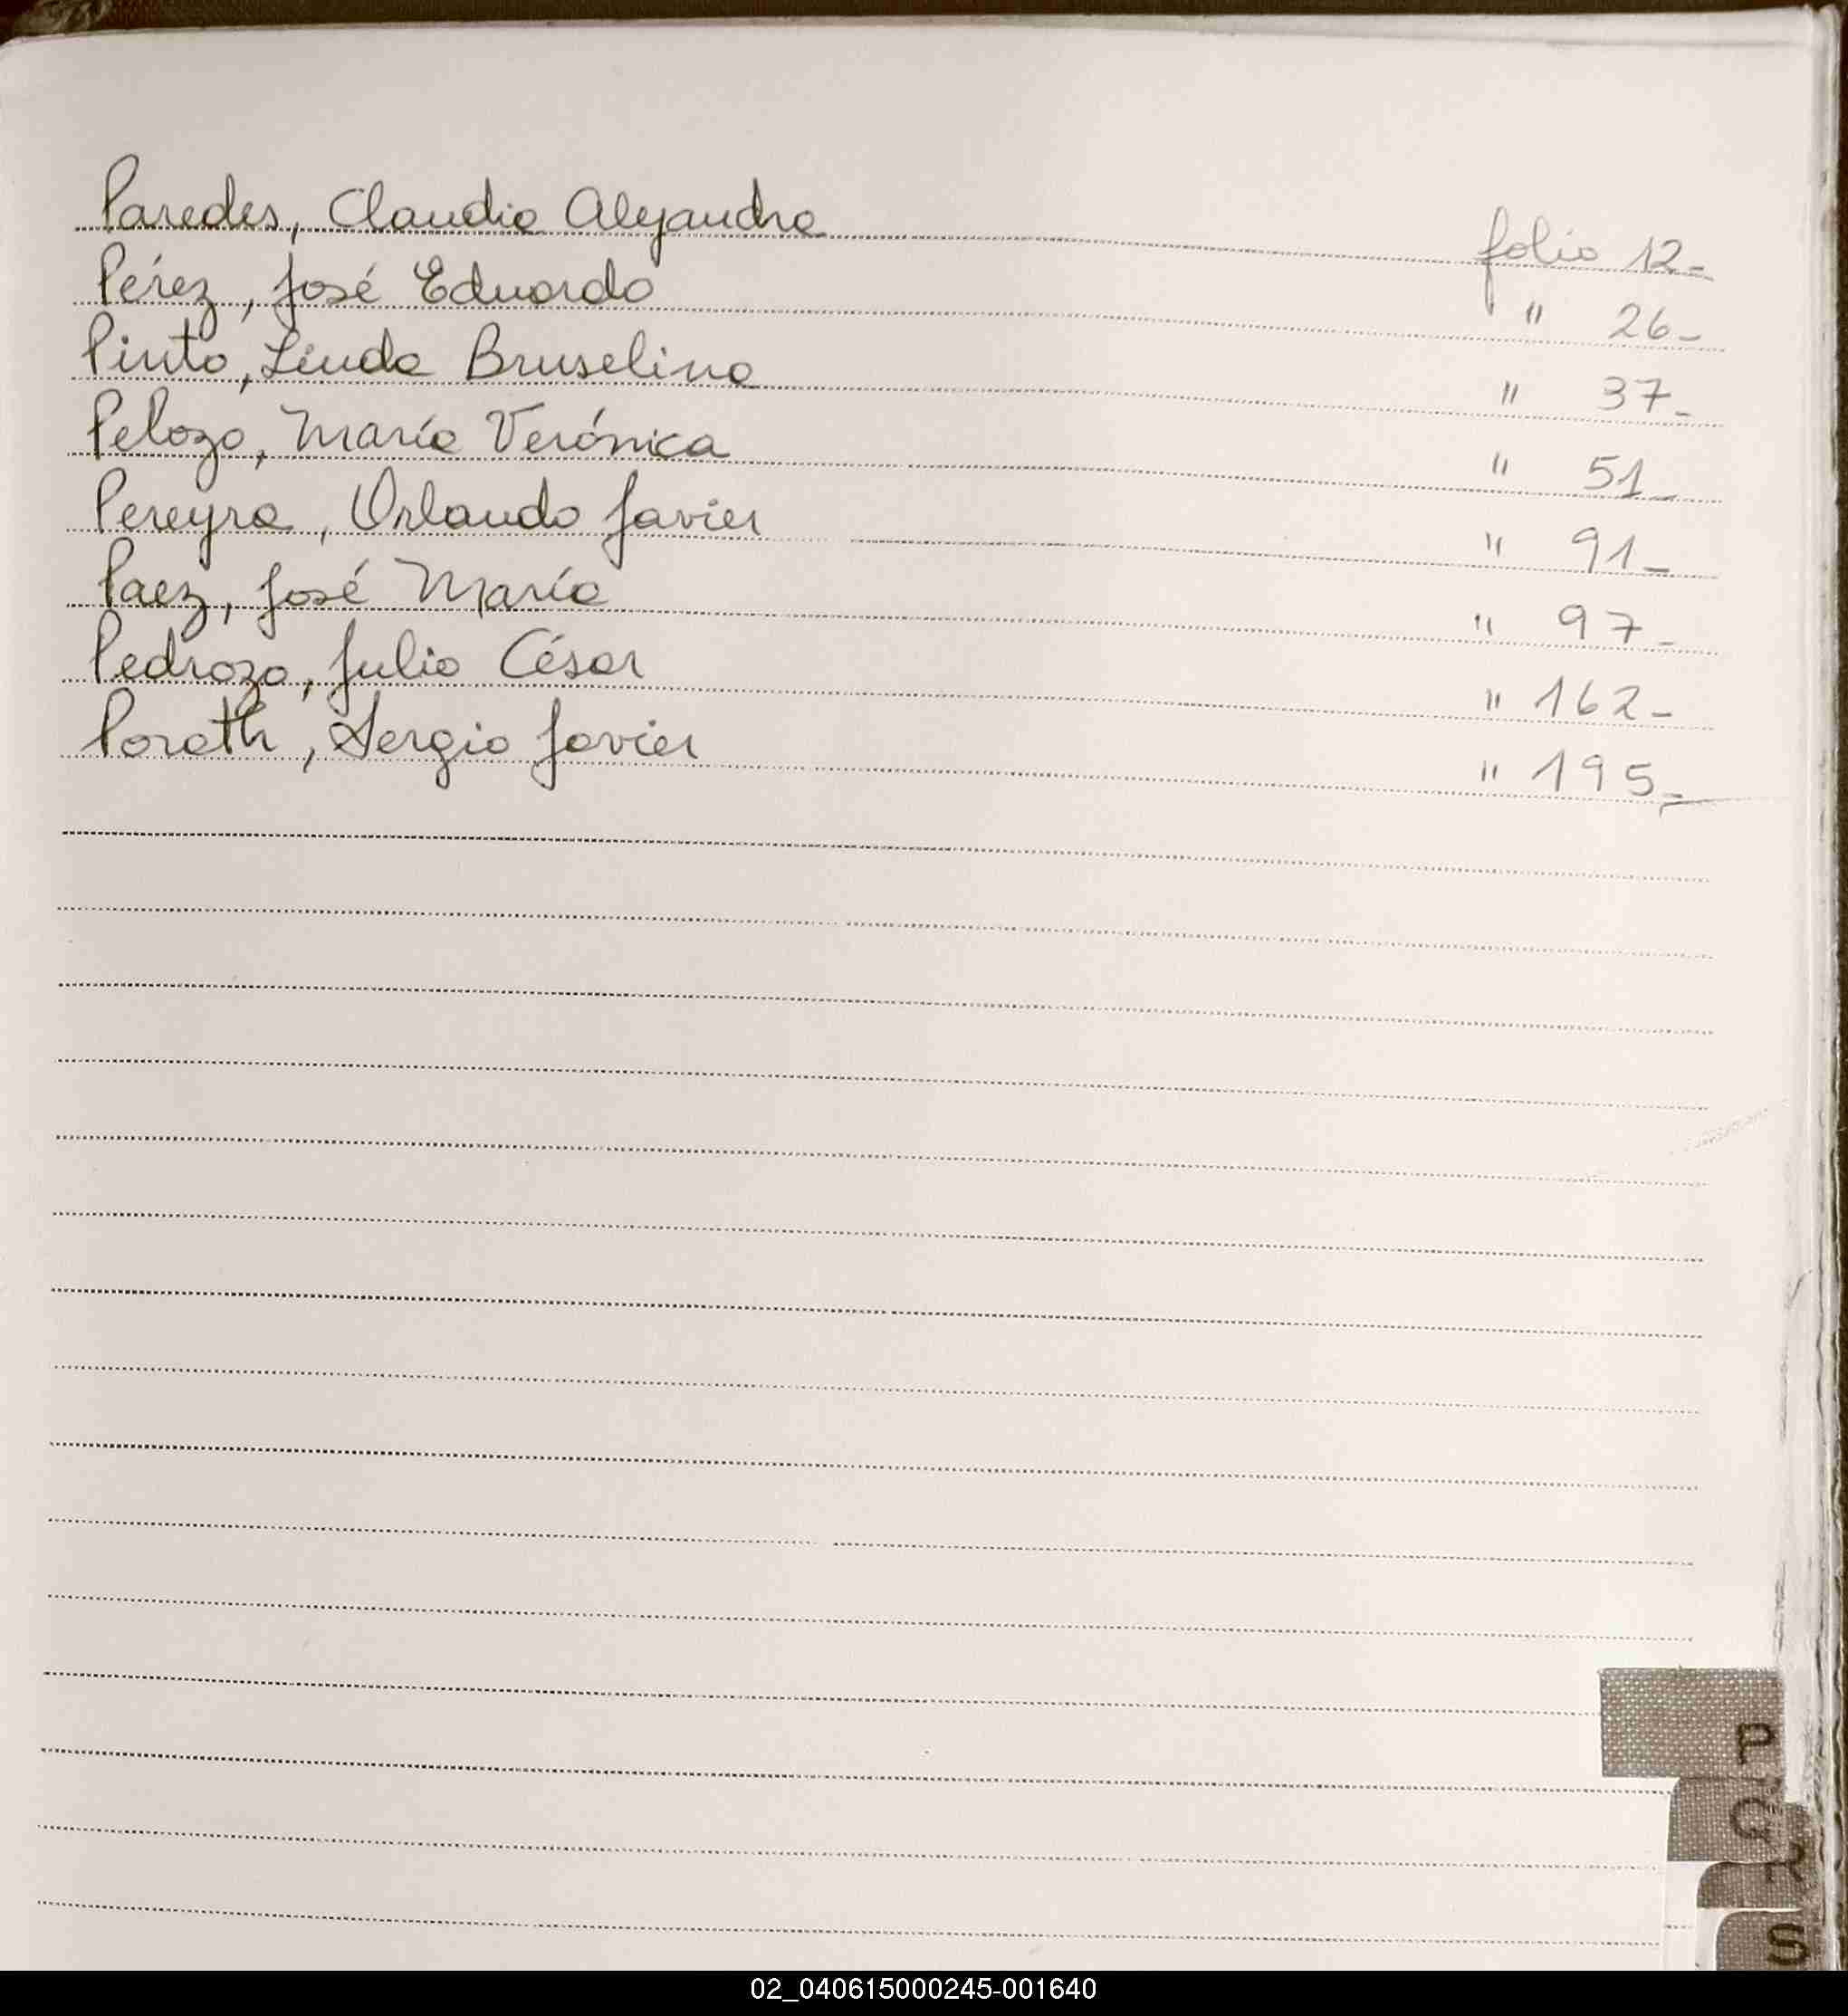 Paredes, Claudio Alejandro folio 12-
Pérez, José Eduardo " 26-
Pinto, Linda Bruselina " 37-
Pelozo, María Verónica " 51-
Pereyra, Orlando Javier " 91-
Paez, José María " 97-
Pedrozo, Julio César " 162-
Porath, Sergio Javier " 195-
P
Q
R
S
02_040615000245-001640